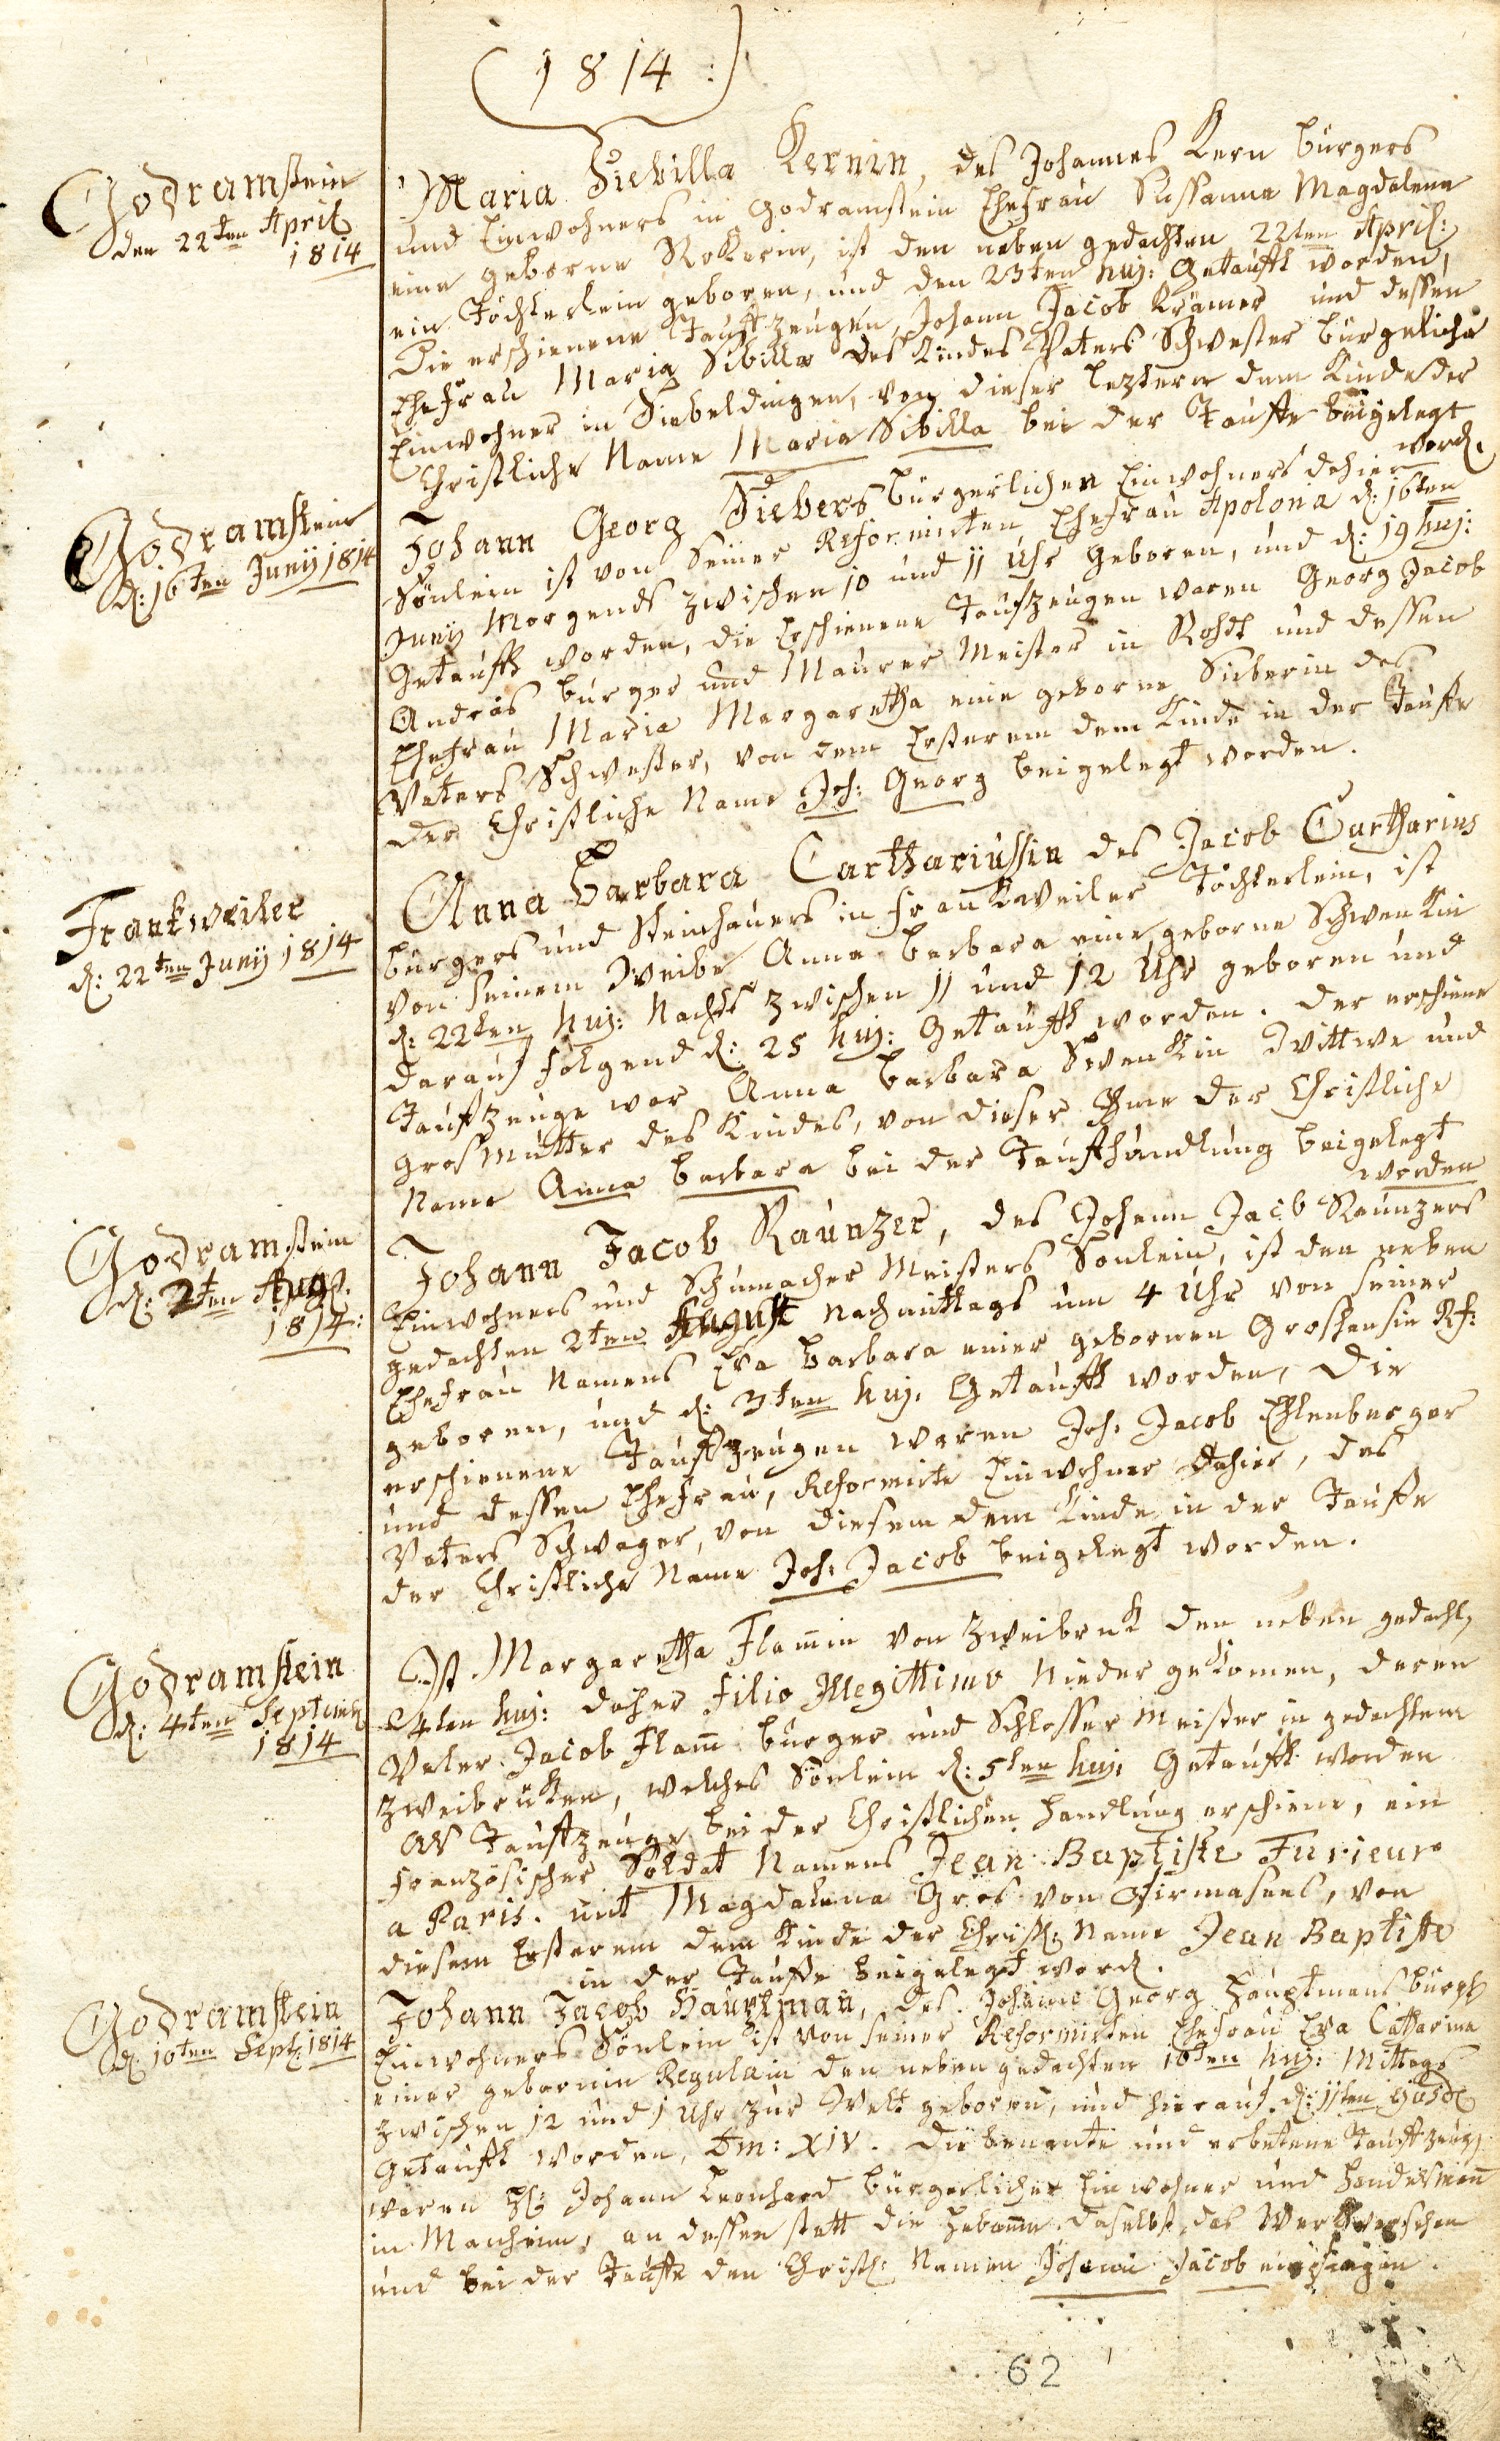 (1814:)
Godramstein
den 22ten April
1814
Maria Siebilla Kernin, des Johannes Kern bürgers
und Einwohners in Godramstein Ehefrau Sussanna Magdalena
eine geborne Rokerin, ist den neben gedachten 22ten April:
ein Töchterlein geboren, und den 23ten huj: Getaufft worden,
Die erschienene Tauffzeugen, Johann Jacob Krämer und dessen
Ehefrau Maria Sibilla des Kindes Vaters Schwester bürgeliche
Einwohner in Siebeldingen, von dieser leztern dem Kinde der
Christliche Name Maria Sibilla bei der Tauffe beigelegt
word.
Godramstein
d: 16ten Junij 1814
Johann Georg Siebers bürgerlichen Einwohners dahier
Sönlein ist von Seiner Reformirten Ehefrau Apolonia d: 16ten
Junij Morgends zwischen 10 und 11 Uhr Geboren, und d: 19 huj:
Getaufft worden, die Erschienene Taufzeugen waren Georg Jacob
Andräs bürger und Maurer Meister in Rohdt und dessen
Ehefrau Maria Margaretha eine geborne Sieberin des
Vaters Schwester, von dem Ersterem dem Kinde in der Tauffe
der Christliche Name Joh: Georg beigelegt worden.
Frankweiler
d: 22ten Junij 1814
Anna Barbara Carthariussin des Jacob Cartharius
bürgers und Steinhauers in Frankweiler Töchterlein, ist
von seinem Weibe Anna Barbara eine geborne Schwenkin
d: 22ten huj: Nachts zwischen 11 und 12 Uhr geboren und
darauf folgend d: 25 huj: Getaufft worden. der erschiene
Taufzeuge war Anna Barbara Swenkin Wittwe und
Grosmutter des Kindes, von dieser Ihme der Christliche
Name Anna Barbara bei der Taufhandlung beigelegt
worden
Godramstein
d: 2ten Augst.
1814:
Johann Jacob Raunzer, des Johann Jacob Raunzers
Einwohners und Schumacher Meisters Sönlein, ist den neben
gedachten 2ten August nachmittags um 4 Uhr von seiner
Ehefrau Namens Eva Barbara einer gebornen Groshansin Rf:
geboren, und d: 3ten huj. Getaufft worden, Die
erschienene Tauffzeugen waren Joh: Jacob Ehlenberger
und dessen Ehefrau, Reformirte Einwohner dahier, des
Vaters Schwager, von diesem dem Kinde in der Tauffe
der Christliche Name Joh: Jacob beigelegt worden.
Godramstein
d: 4ten Septemb
1814
Ist Margaretha Flam̄in von Zweibruk den neben gedacht,
4ten huj: dahier Filio Illegittimo Nieder gekomen, deren
Vater Jacob Flam̄ bürger und Schlosser Meister in gedachtem
Zweibrüken, welches Sönlein d: 5ten huj. Getaufft worden
Als Tauffzeuge bei der Christlichen Handlung erschiene, ein
französischer Soldat Namens Jean Baptiste Furieur
a Paris. mit Magdalena Gros von Pirmasens, von
diesem Ersterem dem Kinde der Christl: Name Jean Baptiste
in der Tauffe beigelegt word.
Godramstein
d. 10ten Sept: 1814
Johann Jacob Hauptman̄, des Johann Georg Hauptmans bürgl:
Einwohners Sönlein ist von seiner Reformirten Ehefrau Eva Catharina
einer gebornin Regulain den neben gedachten 10ten huj: Mittags
zwischen 12 und 1 Uhr zur Welt geboren, und hierauf d: 11ten
Getaufft worden, Dm: XIV. Die benante und erbetene Tauffzeug,
waren Johann Leonhard bürgerlicher Einwohner und Handelsman̄
in Manheim, an dessen statt die Hebam̄e daselbst das Werk
und bei der Tauffe den Christl: Namen Johann Jacob empfangen.
62